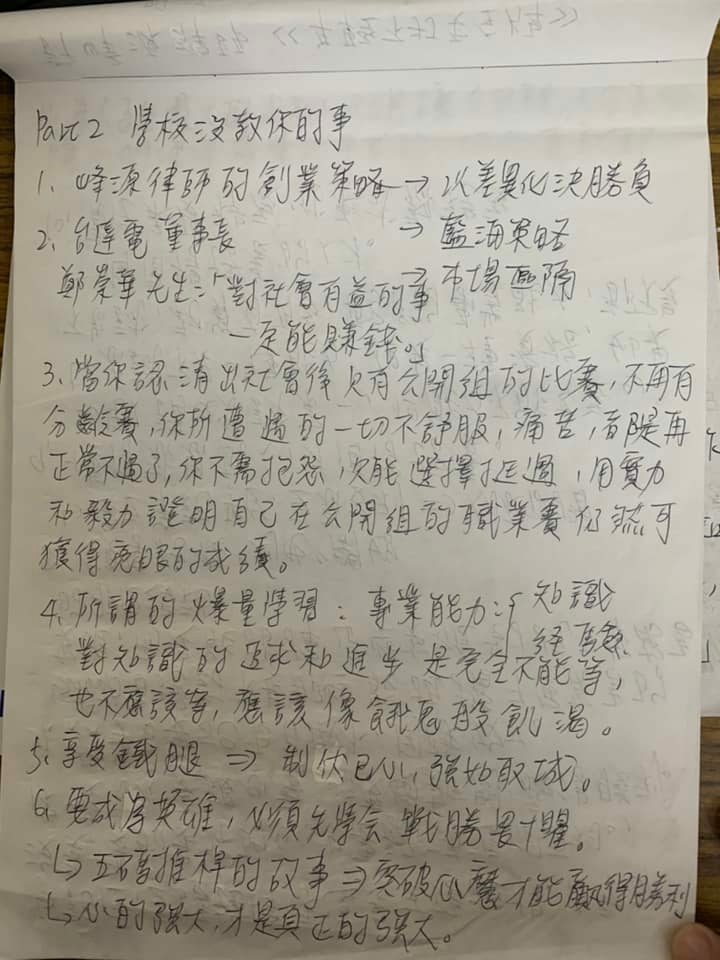 Part 2 學校沒教你的事
1. 峰源律師的創業策略→以差異化決勝負
2. 台達電董事長 →藍海策略
鄭崇華先生:「對社會有益的事 →市場區隔
一定能賺錢。」
3. 當你認清出社會後只有公開組的比賽,不再有
分齡賽,你所遭遇的一切不舒服,痛苦,都是再
正常不過了,你不需抱怨,只能選擇挺過,用實力
和毅力證明自己在公開組的職業賽仍然可
獲得亮眼的成績。
4. 所謂的爆量學習:專業能力:{知識
經驗
對知識的追求和進步是完全不能等,
也不應該等,應該像餓鬼般飢渴。
5. 享受鐵腿 ⇒ 制伏己心,強如取城。
6. 要成為英雄,必須先學会戰勝畏懼。
↳五碼推桿的故事⇒突破心魔才能贏得勝利
↳心的強大,才是真正的強大。